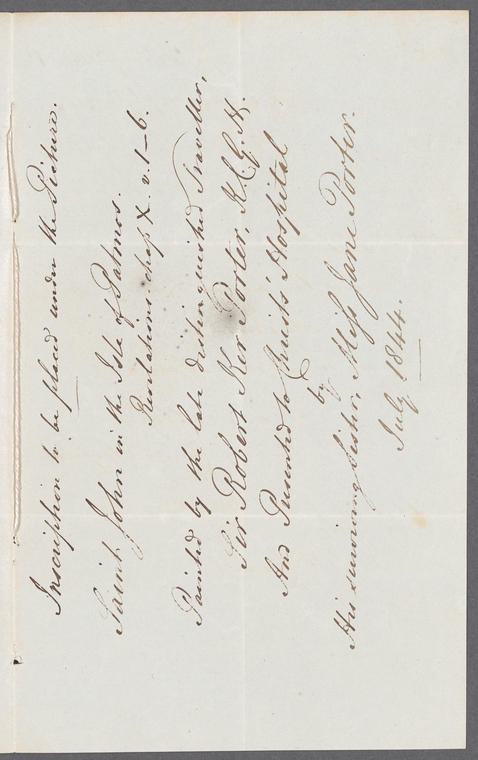 Inscription to be placed under the Picture.
Saint John in the Isle of Patmos.
Revelations chap X. v. 1–6.
Painted by the late distinguished Traveller,
Sir Robert Ker Porter, K.C.H.
And Presented to Christs' Hospital
by
His surviving Sister, Miss Jane Porter.
July 1844.